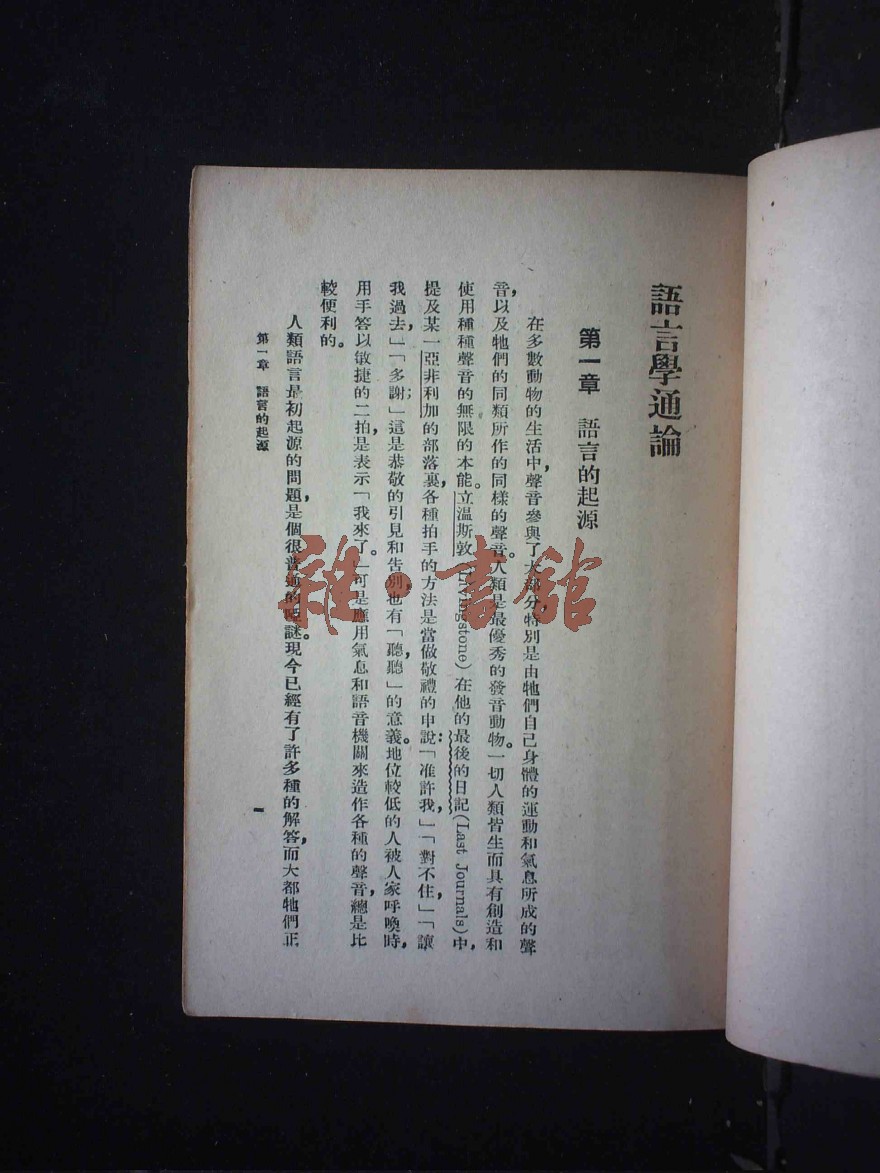 語言學通論
第一章 語言的起源
在多數動物的生活中，聲音參與了大部分特別是由牠們自己身體的運動和氣息所成的聲
音，以及牠們的同類所作的同樣的聲音。人類是最優秀的發音動物。一切人類皆生而具有創造和
使用種種聲音的無限的本能。立溫斯敦(Livingstone)在他的最後的日記(Last Journals)中，
提及某一亞非利加的部落裏，各種拍手的方法是當做敬禮的申說：「准許我，」「對不住」「讓
我過去，」「多謝；」這是恭敬的引見和告別，也有「聽聽」的意義。地位較低的人被人家呼喚時，
用手答以敏捷的二拍，是表示「我來了。」可是應用氣息和語音機關來造作各種的聲音，總是比
較便利的。
人類語言最初起源的問題，是個很普通的啞謎。現今已經有了許多種的解答，而大都牠們正
第一章 語言的起源
一
雜·書館